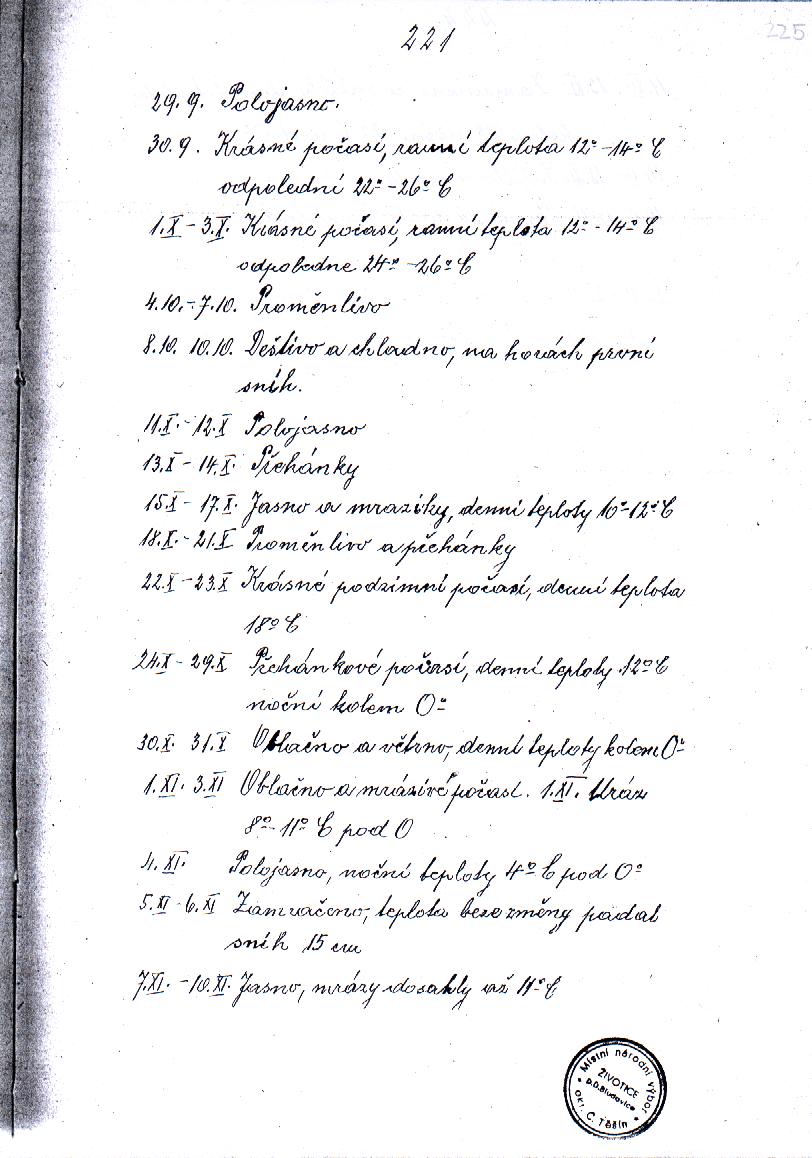 221
225
29.9. Polojasno.
30.9. Krásné počasí, ranní teplota 12° -14° C
odpolední 22° -26° C
1.X - 3.X. Krásné počasí, ranní teplota 12° - 14° C
odpoledne 24° -26° C
4.10.-7.10. Proměnlivo
8.10. 10.10. Deštivo a chladno, na horách první
sníh.
11.X.- 12.X Polojasno
13.X - 14.X. Přehánky
15.X - 17.X. Jasno a mrazíky, denní teploty 10°-12° C
18.X.- 21.X Proměnlivo a přehánky
22.X - 23.X Krásné podzimní počasí, denní teplota
18° C
24.X - 29.X Přehánkové počasí, denní teploty 12° C
noční kolem 0°
30.X. 31.X Oblačno a větrno, denní teploty kolem 0°
1.XI. 3.XI Oblačno a mrazivé počasí. 1.XI. Mráz
8° - 11° C pod 0
4.XI. Polojasno, noční teploty 4° C pod 0°
5.XI - 6.XI Zamračeno, teplota beze změny padal
sníh 15 cm
7.XI. - 10.XI. Jasno, mrazy dosahly až 11° C
Místní národní výbor
ŽIVOTICE
p.D.Bludovice
okr. Č. Těšín